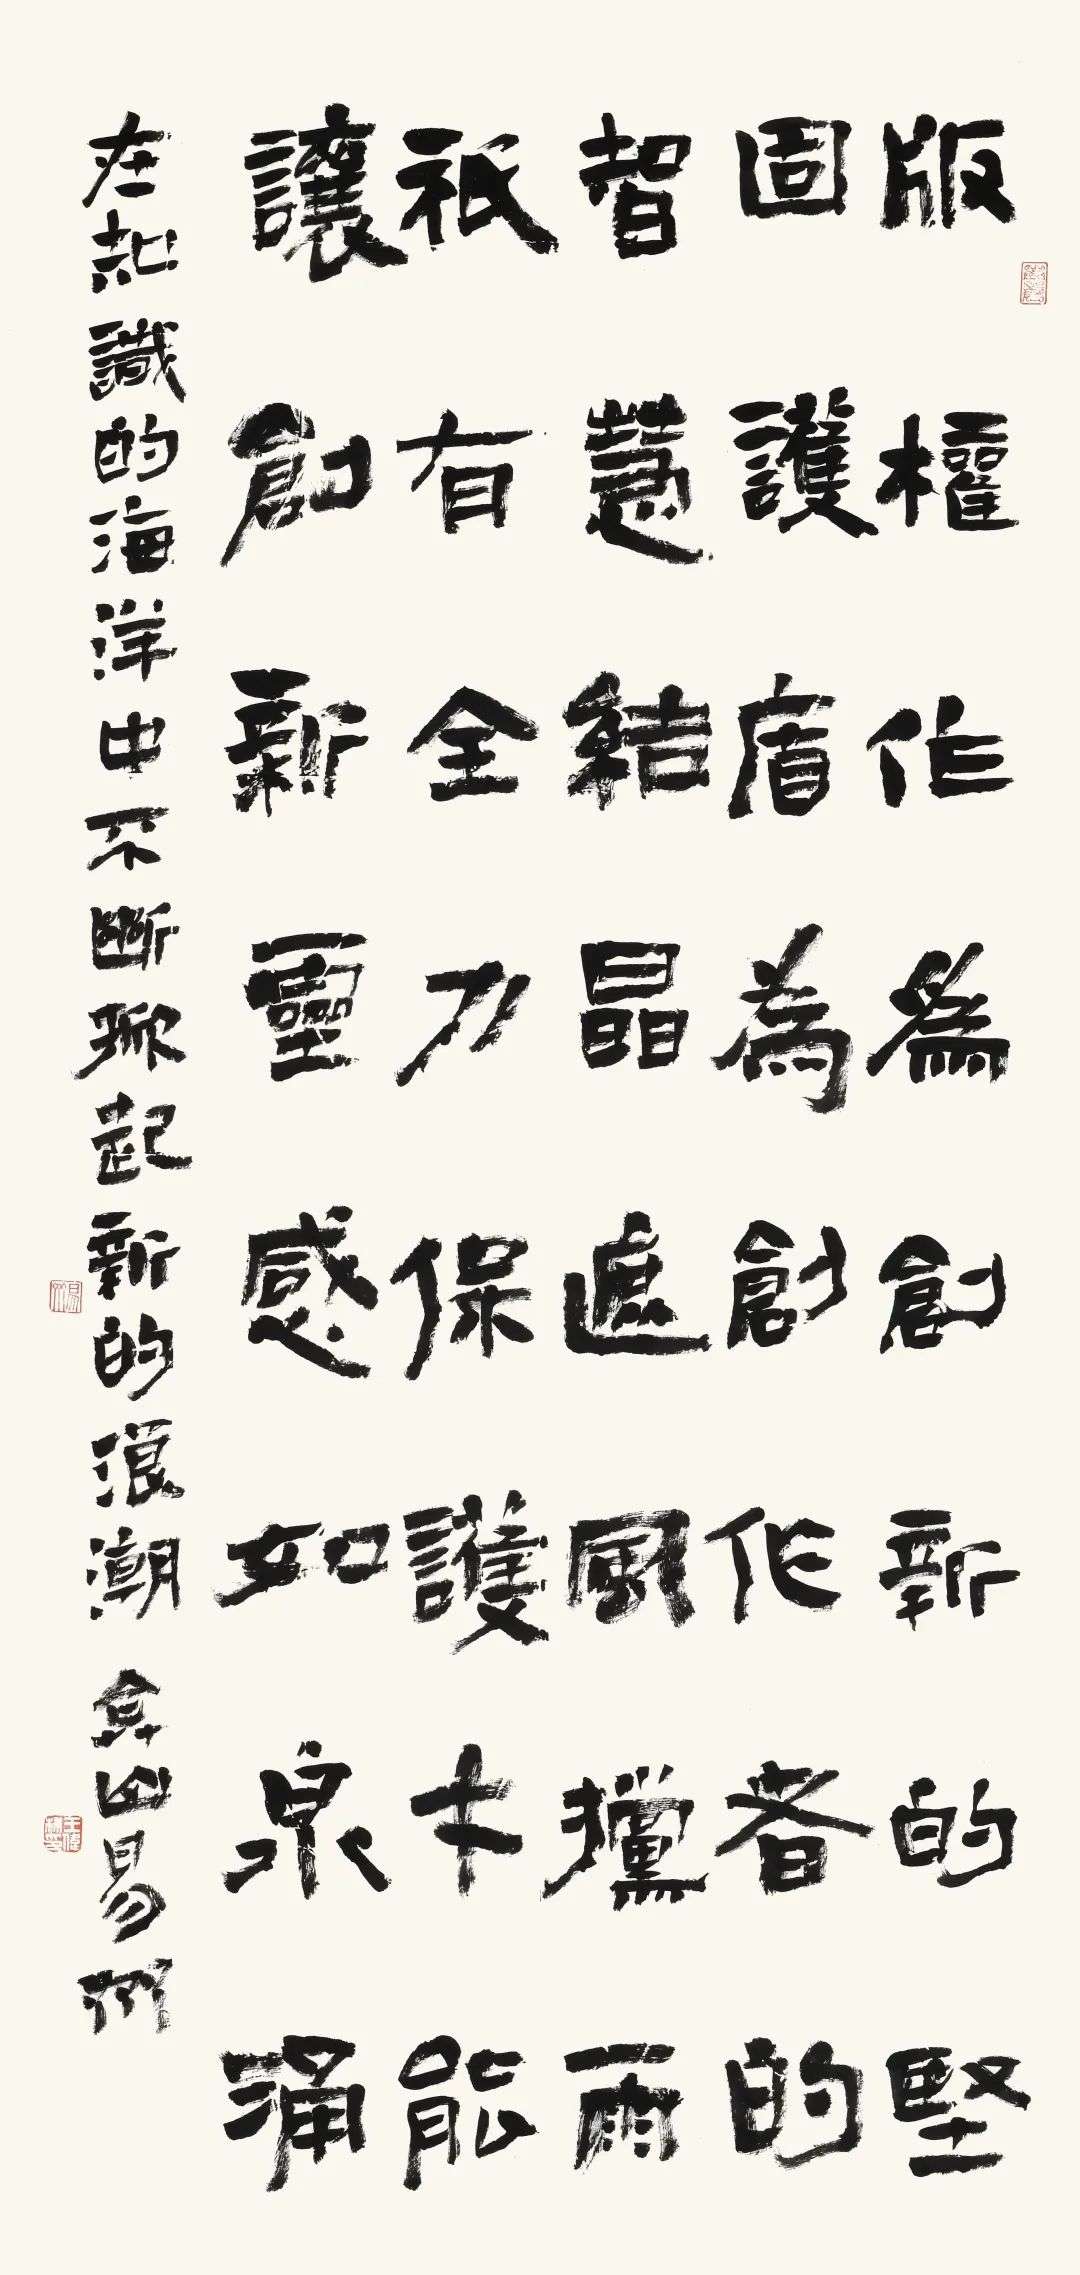 版權作爲創新的堅
固護盾為創作者的
智慧結晶遮風攩雨
祇有全力保護才能
讓創新靈感如泉涌
在知識的海洋中不斷掀起新的浪潮 弇山易州